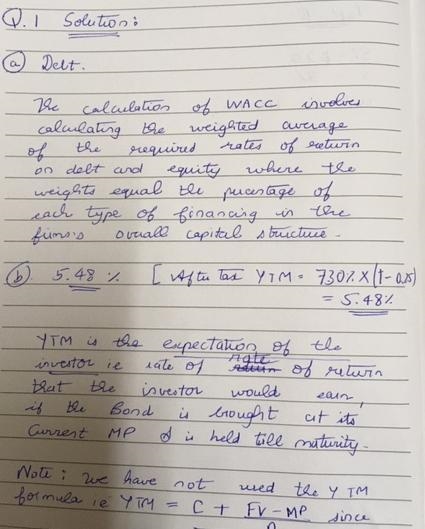 Q.1 Solution:
(a) Debt.
The calculation of WACC involves
calculating the weighted average
of the required rates of return
on debt and equity where the
weights equal the percentage of
each type of financing in the
firm's overall capital structure.
(b) 5.48 % [After Tax YTM = 730% X (1 - 0.25)
= 5.48%
YTM is the expectation of the
investor ie rate of rate of return
that the investor would earn,
if the Bond is brought at its
Current MP & is held till maturity.
Note: we have not used the YTM
formula ie YTM = C + FV - MP since
n